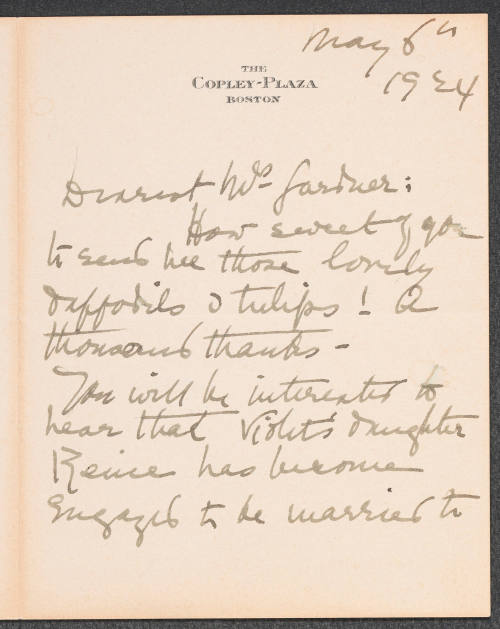 May 6th
1924
THE
COPLEY-PLAZA
BOSTON
Dearest Mrs. Gardner:
How sweet of you
to send me those lovely
daffodils & tulips! A
thousand thanks -
You will be interested to
hear that Violet's daughter
Reine has become
engaged to be married to